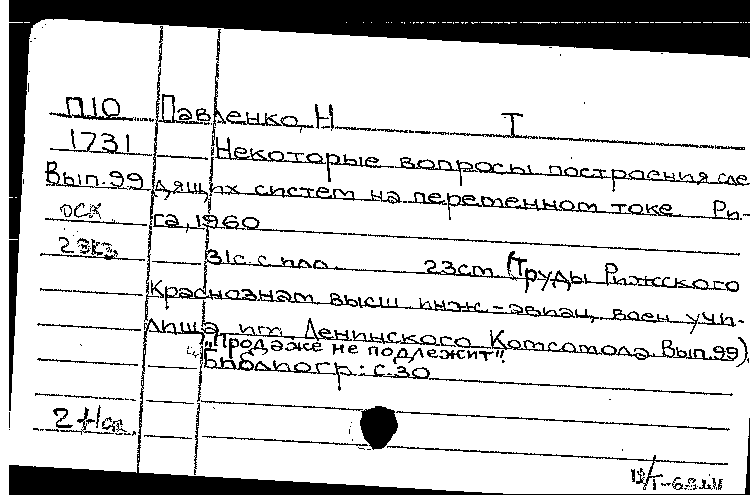 П10 Павленко, Н Т
1731 Некоторые вопросы построения сле
Вып.99 дящих систем на переменном токе Ри-
оск га, 1960
2 экз 31с. с илл. 23 cm. (Труды Рижского
Краснознам высш инж.-авиац. воен учи-
лища им Ленинского Комсомола. Вып.99)
"Продаже не подлежит".
Библиогр: с.30